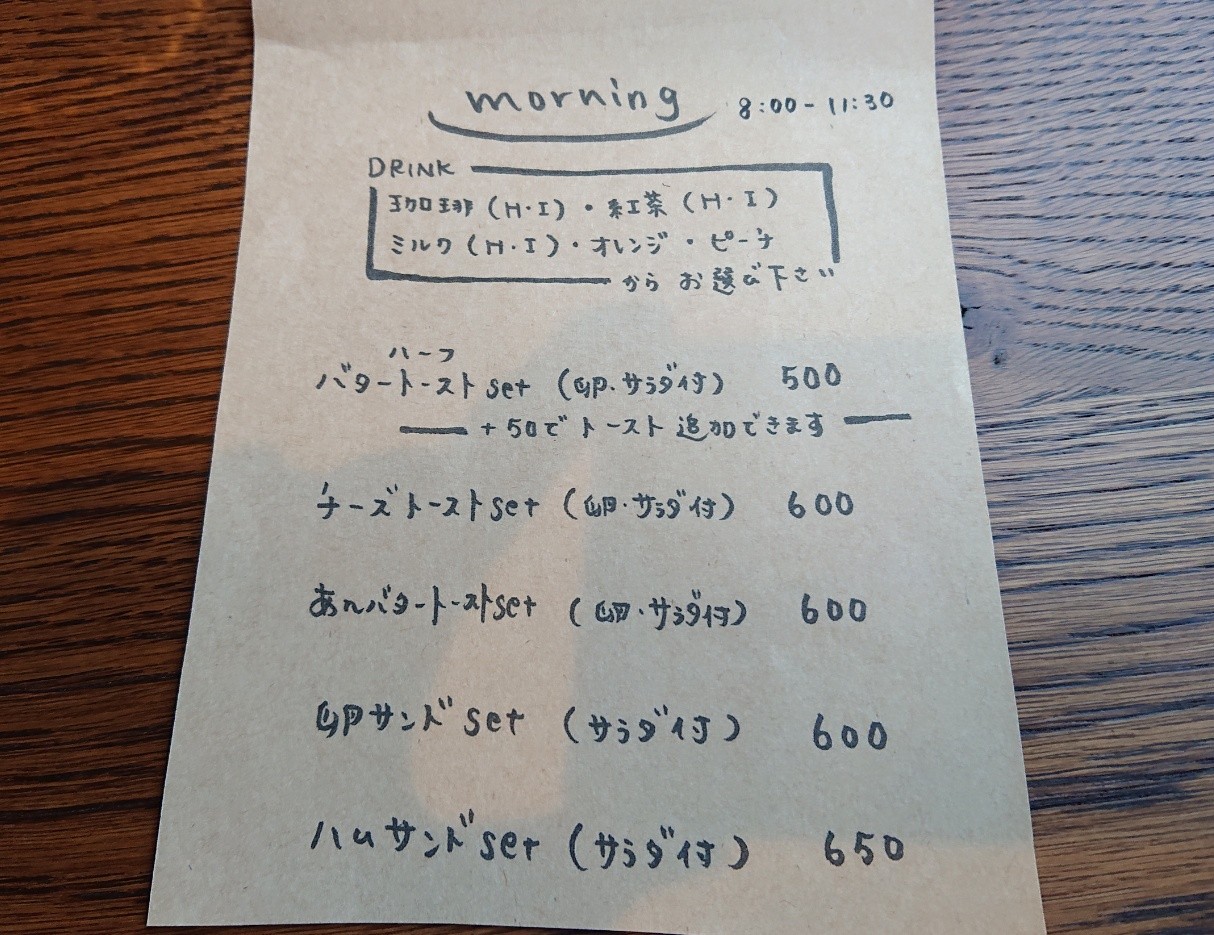 morning 8:00-11:30
DRINK
珈琲(H・I)・紅茶(H・I)
ミルク(H・I)・オレンジ・ピーチ
からお選び下さい
ハーフ
バタートーストset (卵・サラダ付) 500
+50でトースト追加できます
チーズトーストset (卵・サラダ付) 600
あんバタートーストset (卵・サラダ付) 600
卵サンドset (サラダ付) 600
ハムサンドset (サラダ付) 650